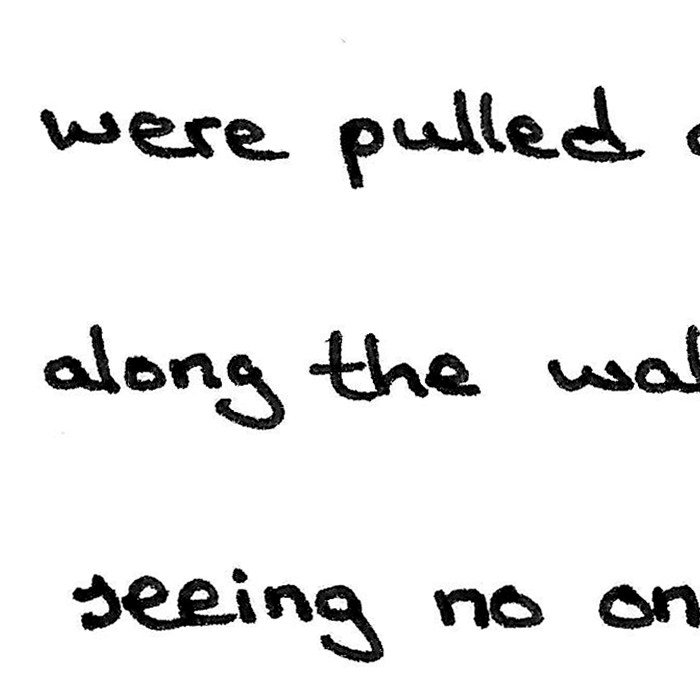 were pulled
along the wal
seeing no on